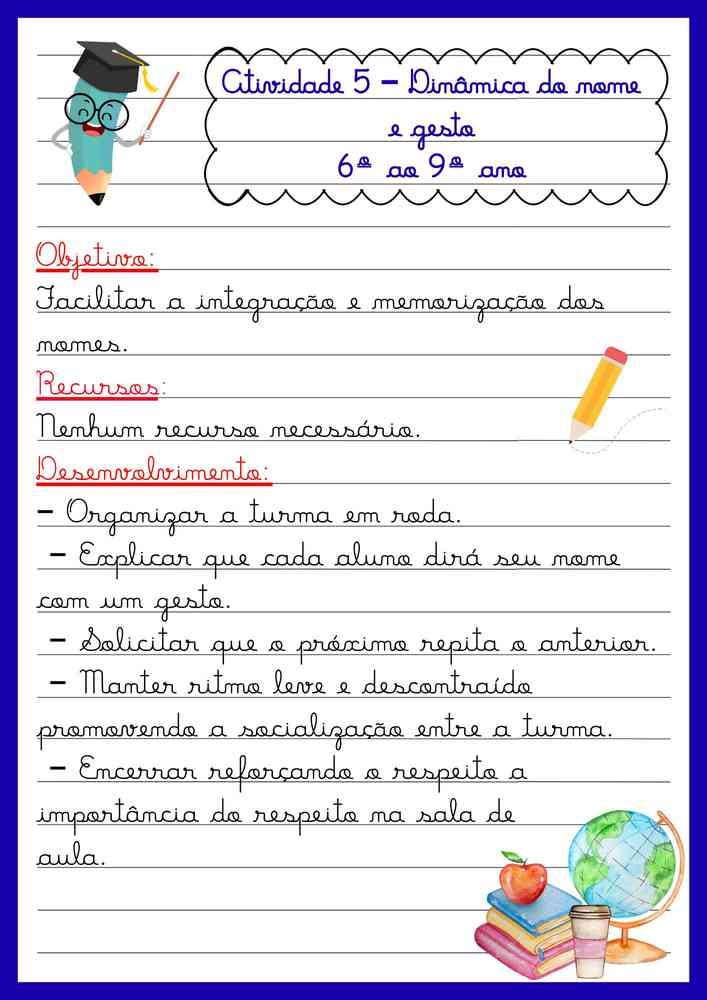 Atividade 5 - Dinâmica do nome
e gesto
6º ao 9º ano
Objetivo:
Facilitar a integração e memorização dos
nomes.
Recursos:
Nenhum recurso necessário.
Desenvolvimento:
- Organizar a turma em roda.
- Explicar que cada aluno dirá seu nome
com um gesto.
- Solicitar que o próximo repita o anterior.
- Manter ritmo leve e descontraído
promovendo a socialização entre a turma.
- Encerrar reforçando o respeito a
importância do respeito na sala de
aula.